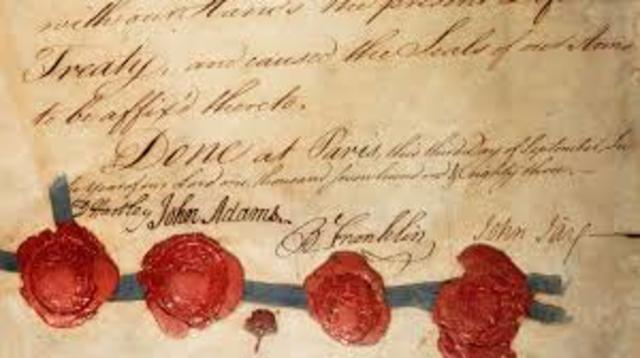 with our Hands the present
Treaty, and caused the Seals of our Arms
to be affix'd thereto.
Done at Paris, this third Day of September, In
the Year of our Lord one thousand seven hundred & eighty three.—
D Hartley John Adams. B Franklin John Jay